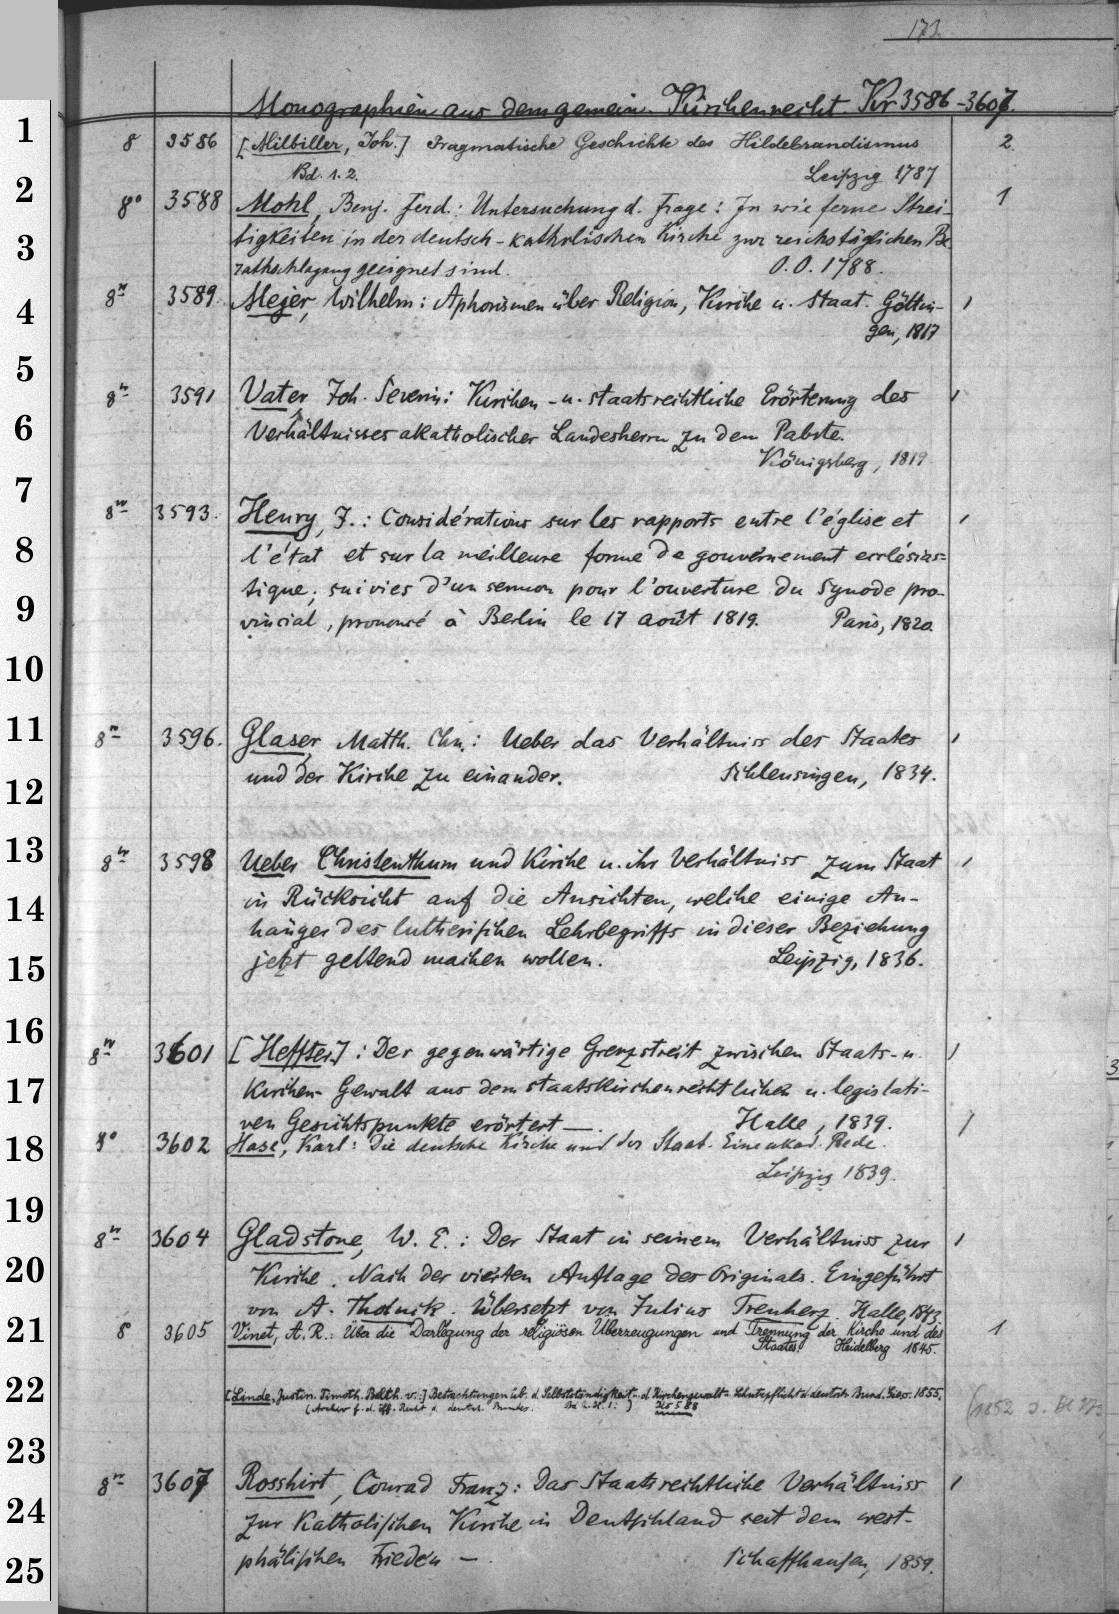 173.
Monographien aus dem gemein. Kirchenrecht. Kr 3586-3607.
1
8 3586 [Milbiller, Joh.] Pragmatische Geschichte des Hildebrandismus 2.
Bd. 1. 2. Leipzig 1787
2
8° 3588 Mohl, Benj. Ferd.: Untersuchung d. Frage: In wie ferne Strei- 1
3
tigkeiten in der deutsch-katholischen Kirche zur reichstäglichen Be
rathschlagung geeignet sind. O.O. 1788.
4
8° 3589. Mejer, Wilhelm: Aphorismen über Religion, Kirche u. Staat. Göttin- 1
gen, 1817
5
8° 3591 Vater, Joh. Severin: Kirchen- u. staatsrechtliche Erörterung des 1
6
Verhältnisses akatholischer Landesherrn zu dem Pabste.
Königsberg, 1819
7
8° 3593. Henry, J.: Considérations sur les rapports entre l'église et 1
8
l'état et sur la meilleure forme de gouvernement ecclésias=
9
tique; suivies d'un sermon pour l'ouverture du Synode pro-
vincial, prononcé à Berlin le 17 août 1819. Paris, 1820.
10
11
8° 3596. Glaser, Matth. Chn.: Ueber das Verhältniss des Staates 1
12
und der Kirche zu einander. Schleusingen, 1834.
13
8° 3598 Ueber Christenthum und Kirche u. ihr Verhältniss zum Staat 1
14
in Rücksicht auf die Ansichten, welche einige An-
hänger des lutherischen Lehrbegriffs in dieser Beziehung
15
jetzt geltend machen wollen. Leipzig, 1836.
16
8° 3601 [Heffter]: Der gegenwärtige Grenzstreit zwischen Staats- u. 1
17
Kirchen-Gewalt aus dem staatskirchenrechtlichen u. legislati-
ven Gesichtspunkte erörtert —. Halle, 1839.
18
8° 3602 Hase, Karl: Die deutsche Kirche und der Staat. Eine akad. Rede. 1
Leipzig 1839.
19
8° 3604 Gladstone, W. E.: Der Staat in seinem Verhältniss zur 1
20
Kirche. Nach der vierten Auflage des Originals. Eingeführt
von A. Tholuck. Übersetzt von Julius Treuherz. Halle, 1843.
21
8 3605 Vinet, A. R.: Über die Darlegung der religiösen Überzeugungen und Trennung der Kirche und des 1
Staates. Heidelberg 1845.
22
[Linde, Justin. Timoth. Balth. v.:] Betrachtungen üb. d. Selbstständigkeit d. Kirchengewalt Schutzpflicht d. deutsch. Bund. Giess. 1855.
(Archiv f. d. öff. Recht d. deutsch. Bundes. Bd 2. H. 1.)
(1852
23
8° 3607 Rosshirt, Conrad Franz: Das Staatsrechtliche Verhältniss 1
24
zur Katholischen Kirche in Deutschland seit dem west-
25
phälischen Frieden —. Schaffhausen, 1859.